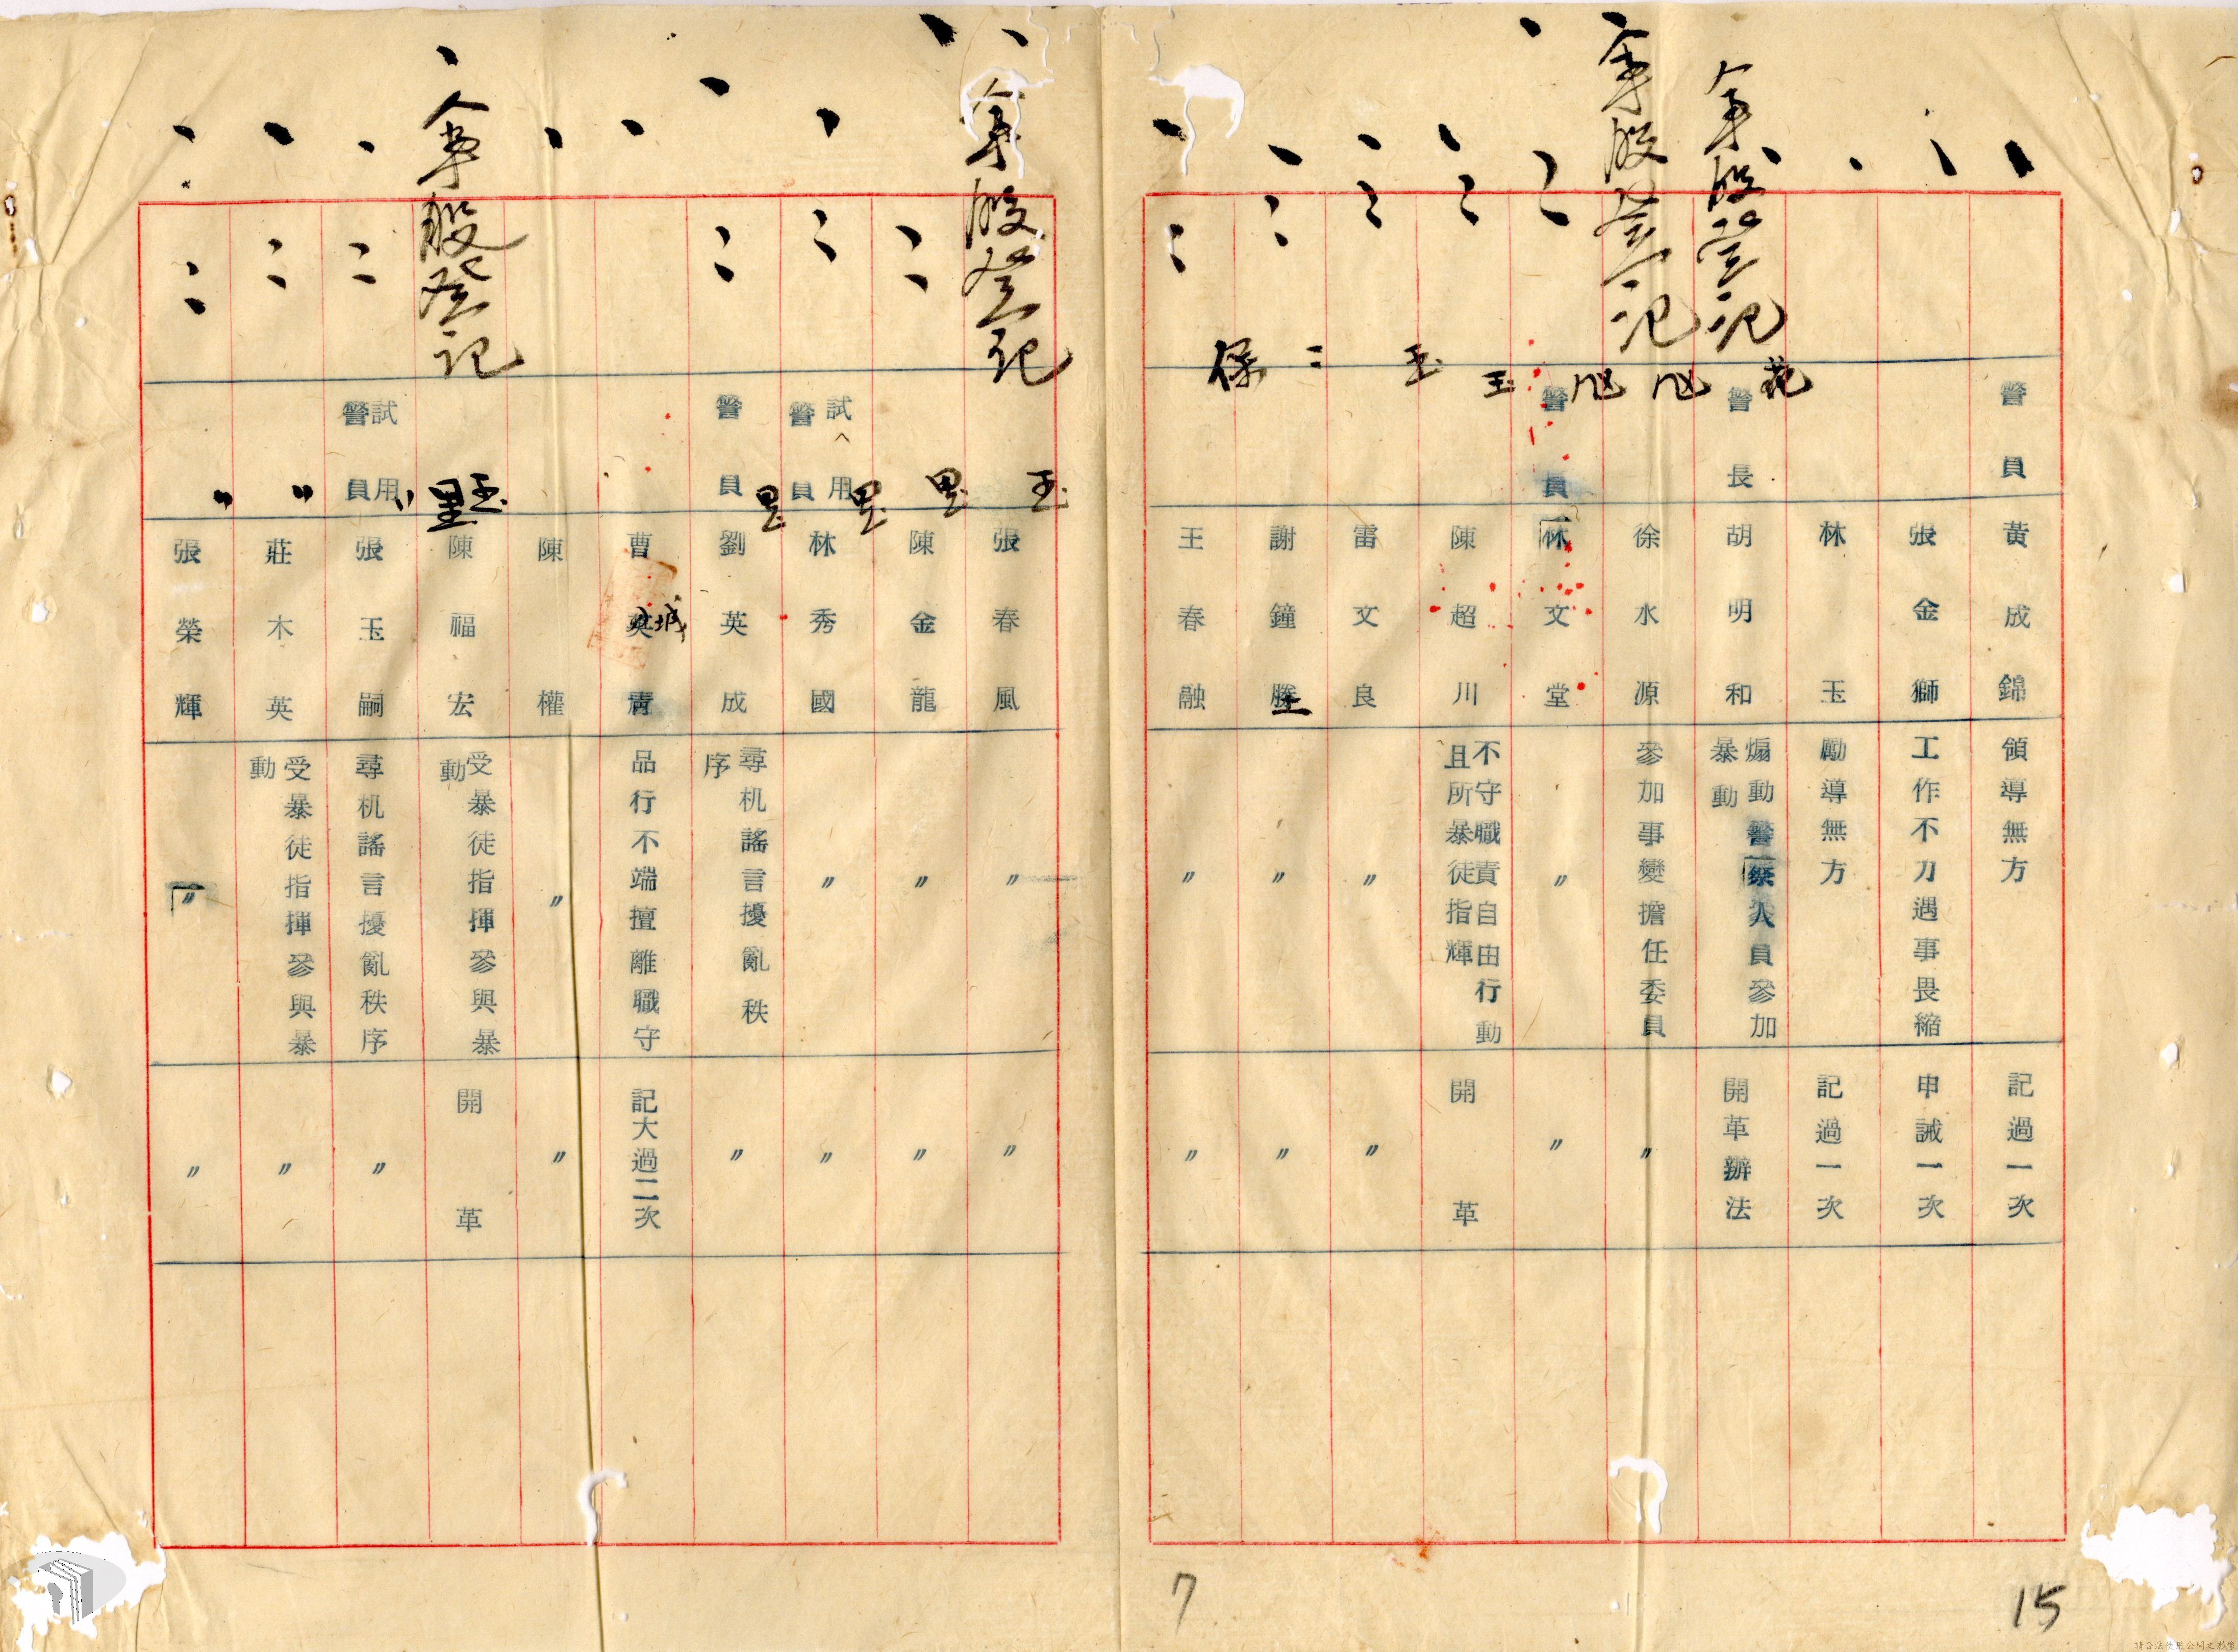 警員 黃成錦 領導無方 記過一次
張金獅 工作不力遇事畏縮 申誡一次
林玉 勵導無方 記過一次
花
警長 胡明和 煽動警察人員參加暴動 開革辦法
人事股登記
徐水源 參加事變擔任委員 〃
人事股登記
警員 林文堂 〃 〃
玉
陳超川 不守職責自由行動且所暴徒指輝 開革
玉
雷文良 〃 〃
謝鐘 〃 〃
保
王春融 〃 〃
7
15
人事股登記
玉
張春風 〃 〃
里
陳金龍 〃 〃
里
試用警員 林秀國 〃 〃
里
警員 劉英成 尋机謠言擾亂秩序 〃
曹城青 品行不端擅離職守 記大過二次
陳權 〃 〃
人事股登記
玉里
陳福宏 受暴徒指揮參與暴動 開革
〃
試用警員 張玉嗣 尋机謠言擾亂秩序 〃
〃
莊木英 受暴徒指揮參與暴動 〃
〃
張榮輝 〃 〃